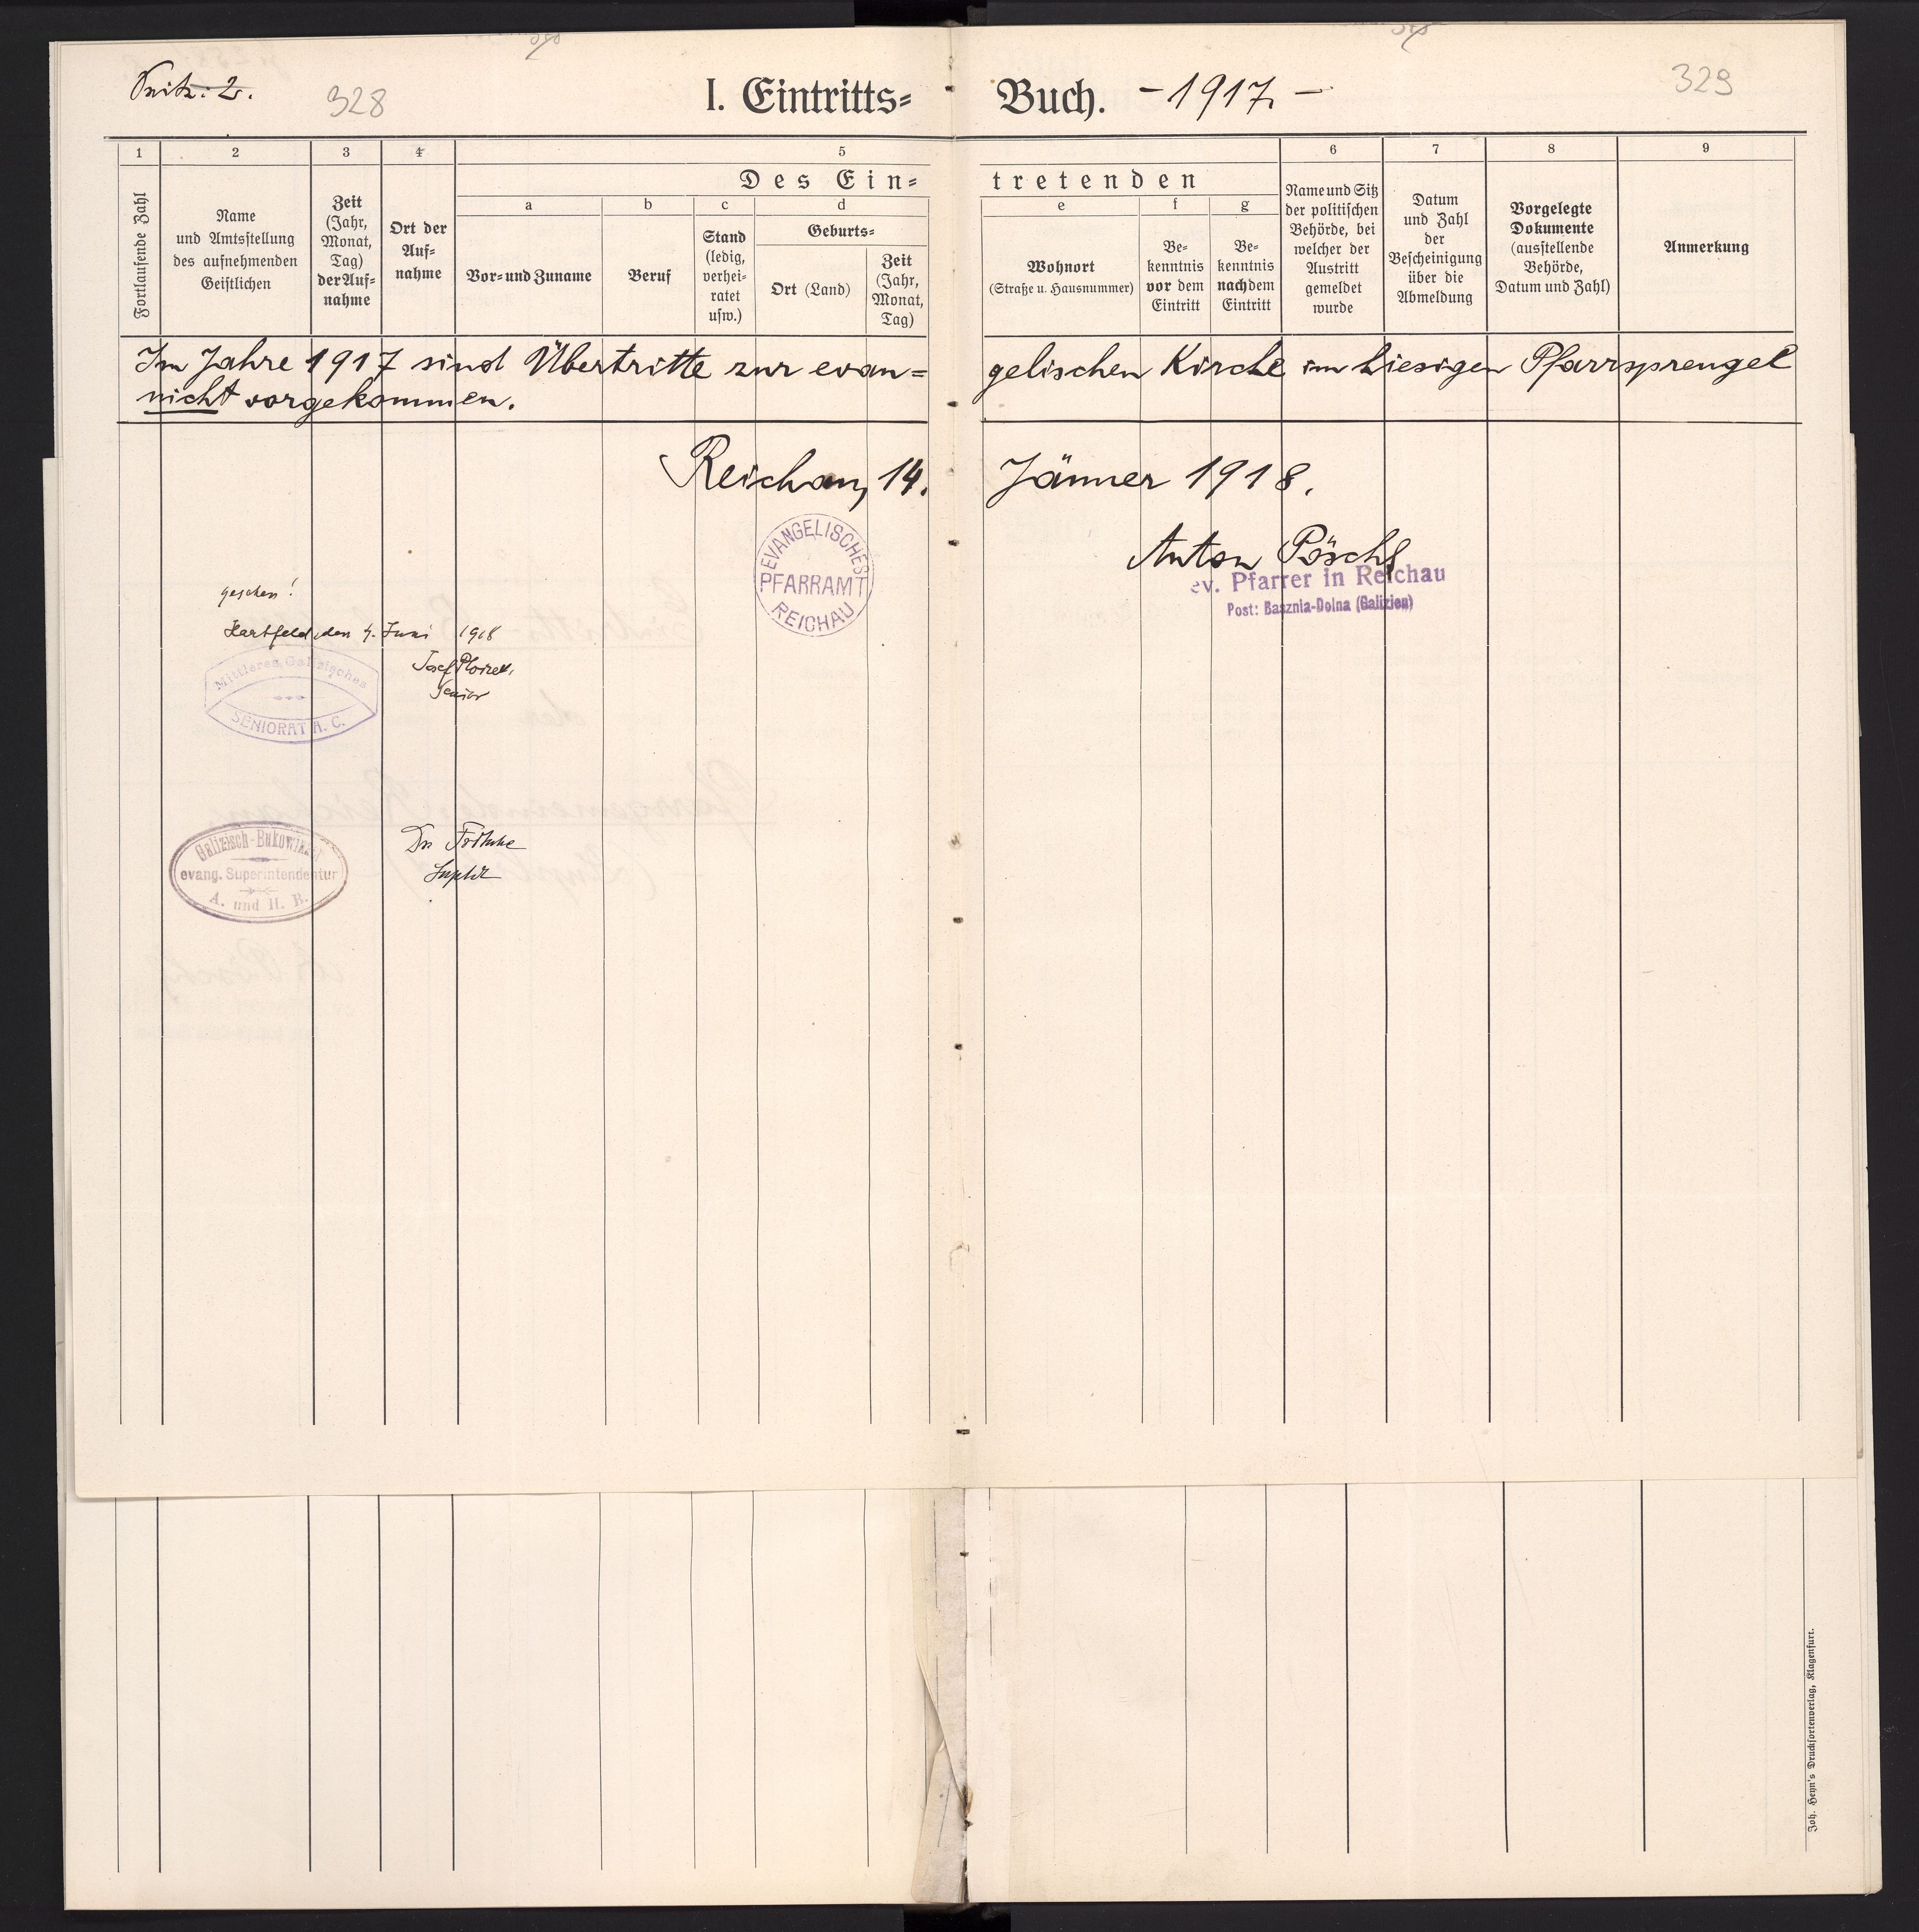 Seite: 2.
328
I. Eintritts= Buch. -1917.-
329
1 2 3 4 5 6 7 8 9
Des Ein= tretenden
a b c d e f g
Fortlaufende Zahl
Name
und Amtsstellung
des aufnehmenden
Geistlichen
Zeit
(Jahr,
Monat,
Tag)
der Auf-
nahme
Ort der
Auf-
nahme
Vor- und Zuname
Beruf
Stand
(ledig,
verhei-
ratet
usw.)
Geburts-
Ort (Land)
Zeit
(Jahr,
Monat,
Tag)
Wohnort
(Straße u. Hausnummer)
Be-
kenntnis
vor dem
Eintritt
Be-
kenntnis
nach dem
Eintritt
Name und Sitz
der politischen
Behörde, bei
welcher der
Austritt
gemeldet
wurde
Datum
und Zahl
der
Bescheinigung
über die
Abmeldung
Vorgelegte
Dokumente
(ausstellende
Behörde,
Datum und Zahl)
Anmerkung
Im Jahre 1917 sind Übertritte zur evan= gelischen Kirche im hiesigen Pfarrsprengel
nicht vorgekommen.
Reichau, 14. Jänner 1918.
EVANGELISCHES
PFARRAMT
REICHAU
Anton Pöschl
ev. Pfarrer in Reichau
Post: Basznia-Dolna (Galizien)
gesehen!
Hartfeld, den 4. Juni 1918
Josef
Senior
Mittleres Galizisches
SENIORAT A. C.
Galizisch-Bukowinaer
evang. Superintendentur
A. und H. B.
Dr Fritsche
Supdt
Joh. Heyn's Drucksortenverlag, Klagenfurt.